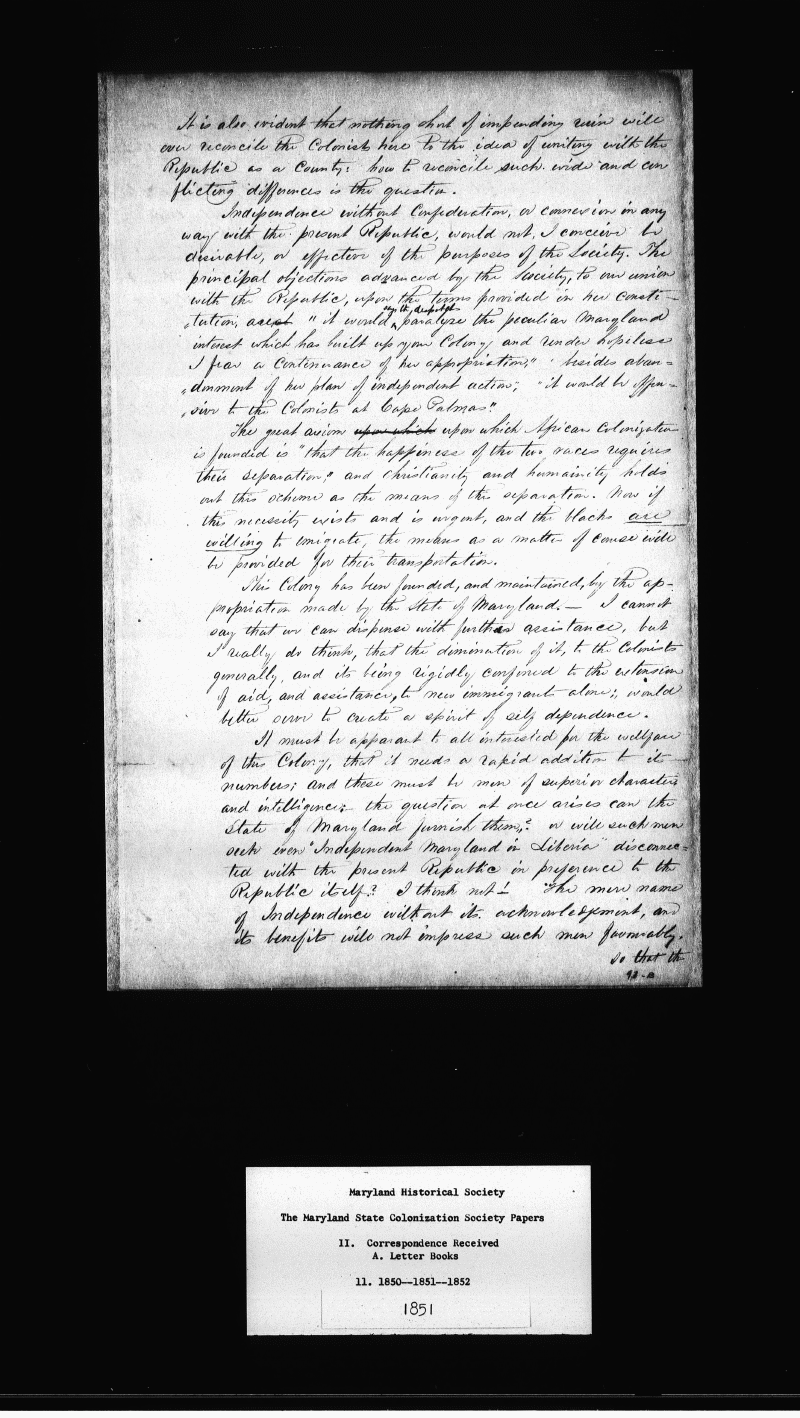 It is also evident that nothing short of impending ruin will
ever reconcile the Colonist here to the idea of uniting with the
Republic as a County: how to reconcile such wide and con
flicting differences is the question.
Independence without Confederation, or connexion in any
way with the present Republic, would not, I conceive be
desirable, or effective of the purposes of the Society. The
principal objections advanced by the Society, to our union
with the Republic, upon the terms provided in her consti-
tution, are "it would paralyze the peculiar Maryland
interest which has built up your Colony and render hopeless
I fear a contenuance of her appropriation," besides aban-
donment of her plan of independent action; "it would be offen-
sive to the Colonists at Cape Palmas."
The great axiom upon which upon which African Colonization
is founded is "that the happiness of the two races requires
their separation," and christianity and humainity holds
out this scheme as the means of this separation. Now if
this necessity exists and is urgent, and the blacks are
willing to emigrate, the means as a matter of course will
be provided for their transportation.
This Colony has been founded, and maintained, by the ap-
propriation made by the State of Maryland. — I cannot
say that we can dispense with further assistance, but
I really do think, that the diminution of it, to the Colonists
generally, and its being rigidly confined to the extension
of aid, and assistance, to new immigrants alone; would
better serve to create a spirit of self dependence.
It must be apparant to all interested for the wellfare
of this Colony, that it needs a rapid addition to its
numbers; and these must be men of superior character
and intelligence; the question at once arises can the
State of Maryland furnish them,? or will such men
seek even "Independent Maryland in Liberia" disconnec-
ted with the present Republic in preference to the
Republic itself? I think not! The mere name
of Independence without its acknowledgment, and
its benefits will not impress such men favourably.
so that the
Maryland Historical Society
The Maryland State Colonization Society Papers
II. Correspondence Received
A. Letter Books
11. 1850--1851--1852
1851